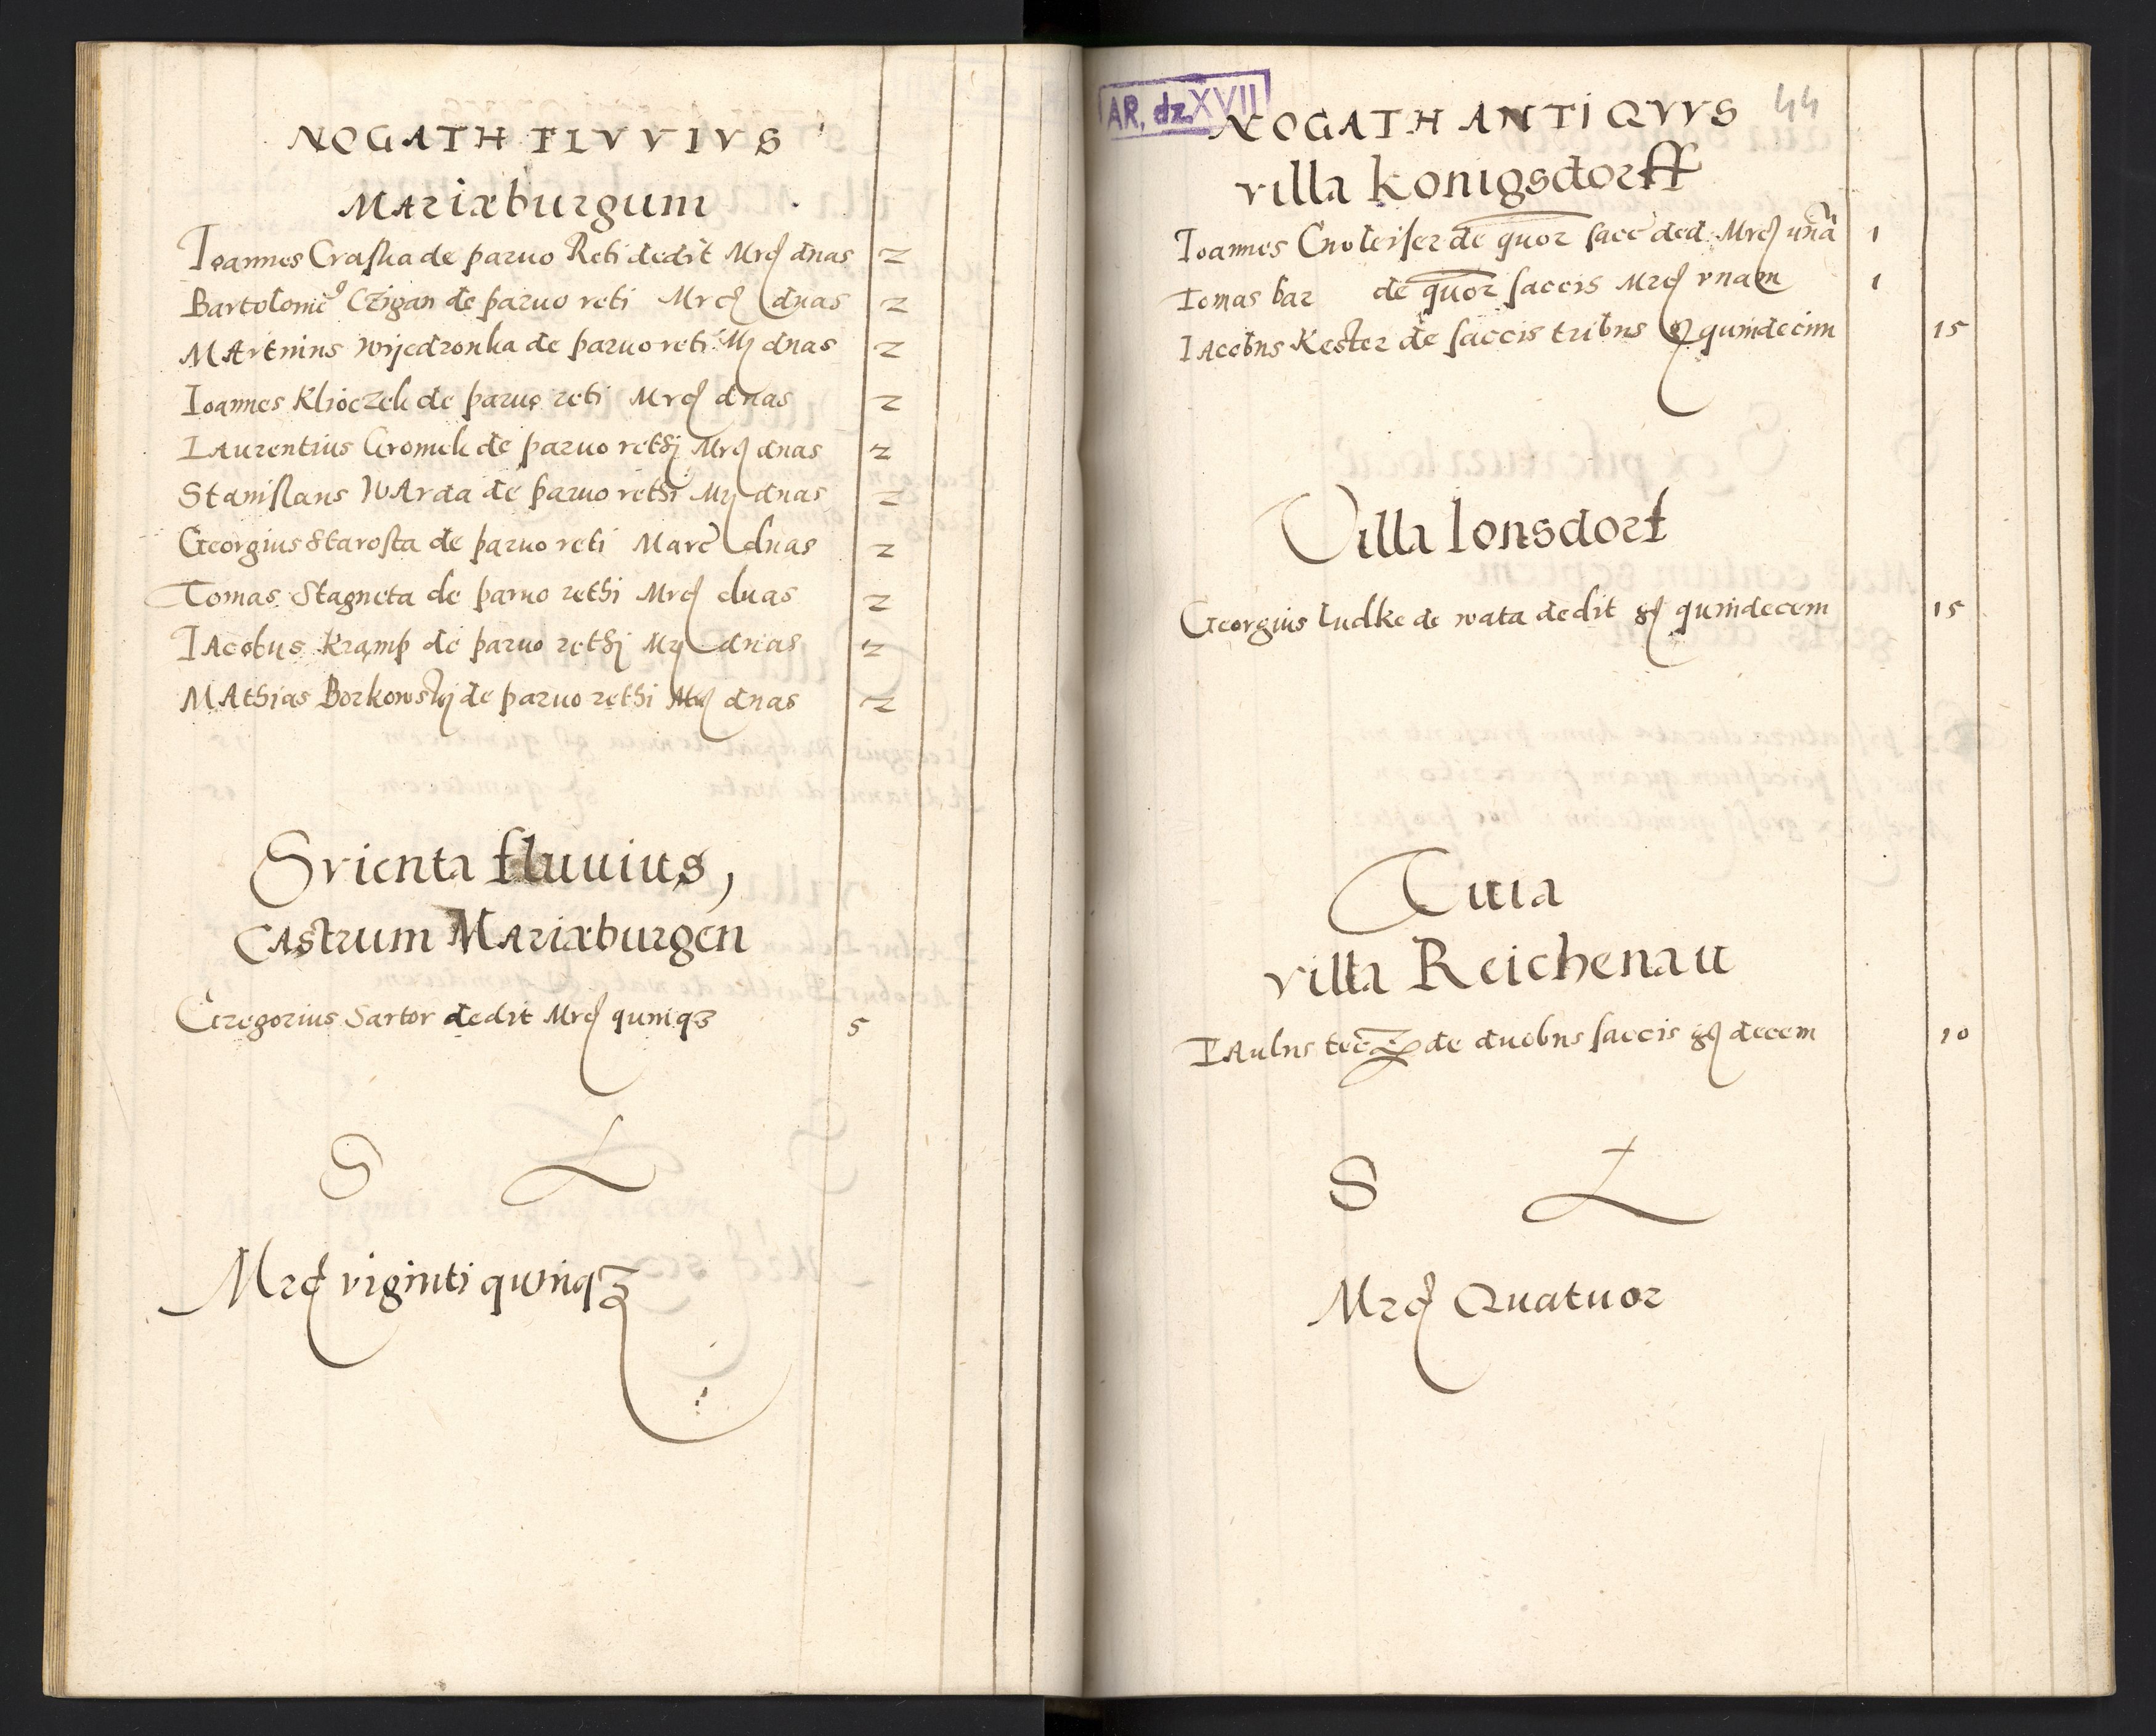 NOGATH FLVVIVS
Mariæburgum
Ioannes Craska de paruo Reti dedit Mrc duas 2
Bartolome9 Czigan de paruo reti Mrc duas 2
Martinus Wijedzonka de paruo reti Mr duas 2
Ioannes Klioczek de paruo reti Mrc duas 2
Laurentius Gromek de paruo rethj Mrc duas 2
Stanislaus Warda de paruo rethi Mr duas 2
Georgius Starosta de paruo reti Marc duas 2
Tomas Stagneta de paruo rethi Mrc duas 2
Iacobus Kramp de paruo rethj Mr duas 2
Mathias Borkowskij de paruo rethi Mrc duas 2
Svienta fluuius,
Castrum Mariæburgen
Gregorius Sartor dedit Mrc quinqꝫ 5
S L
Mrc viginti quinqꝫ
AR. dz. XVII
44
NOGATH ANTIQVVS
villa Konigsdorff
Ioannes Cnoleiser de quor sacc ded Mrc unā 1
Tomas bar de quor saccis Mrc vnam 1
Iacobus Kester de saccis tribus g quindecim 15
Villa Ionsdorf
Georgius ludke de wata dedit g quindecem 15
Tuia
villa Reichenau
Paulus de duobus saccis g decem 10
S L
Mrc Quatuor